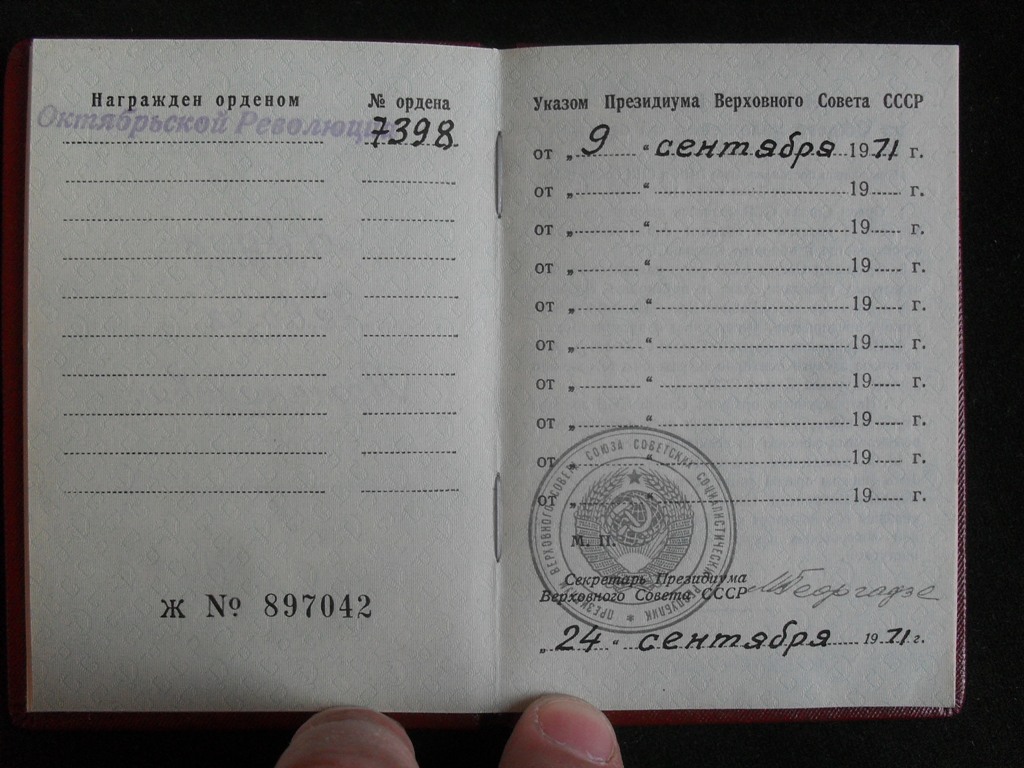 Награжден орденом № ордена
Октябрьской Революции 7398
Ж № 897042
Указом Президиума Верховного Совета СССР
от „ 9 “ сентября 1971 г.
от „ “ 19 г.
от „ “ 19 г.
от „ “ 19 г.
от „ “ 19 г.
от „ “ 19 г.
от „ “ 19 г.
от „ “ 19 г.
от „ “ 19 г.
от „ “ 19 г.
ПРЕЗИДИУМ ВЕРХОВНОГО СОВЕТА СОЮЗА СОВЕТСКИХ СОЦИАЛИСТИЧЕСКИХ РЕСПУБЛИК
М. П.
Секретарь Президиума
Верховного Совета СССР МГеоргадзе
„ 24 “ сентября 1971 г.